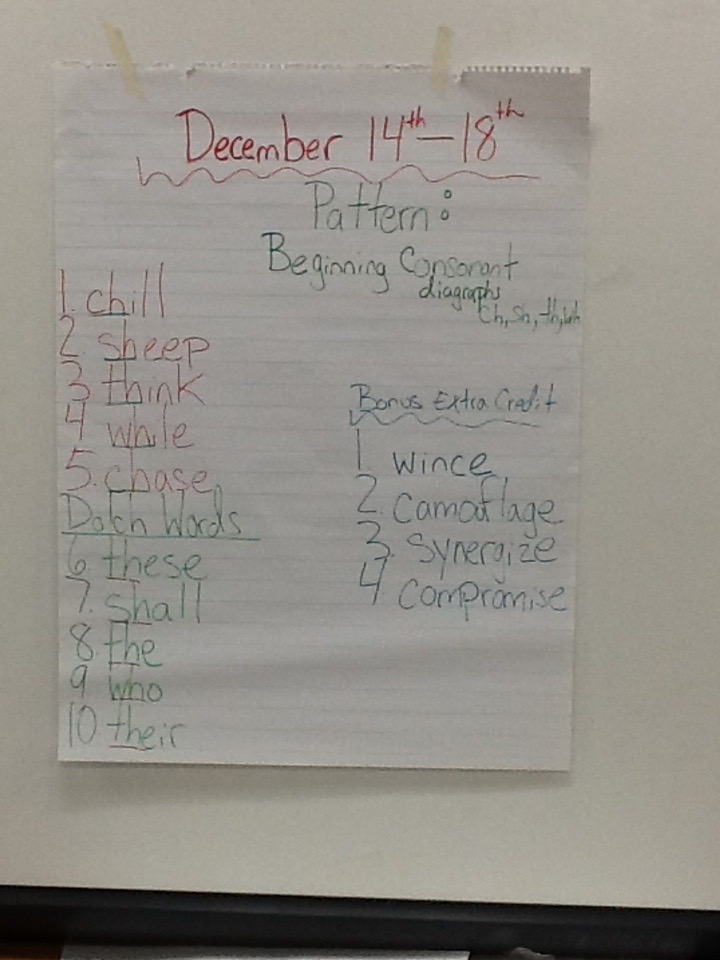 December 14th-18th
Pattern:
Beginning Consonant
diagraphs
Ch, sh, th, wh
1. chill
2 sheep
3 think
4 while
5. chase
Dolch Words
6 these
7. shall
8 the
9 who
10 their
Bonus Extra Credit
1 wince
2 camoflage
3. synergize
4 compromise